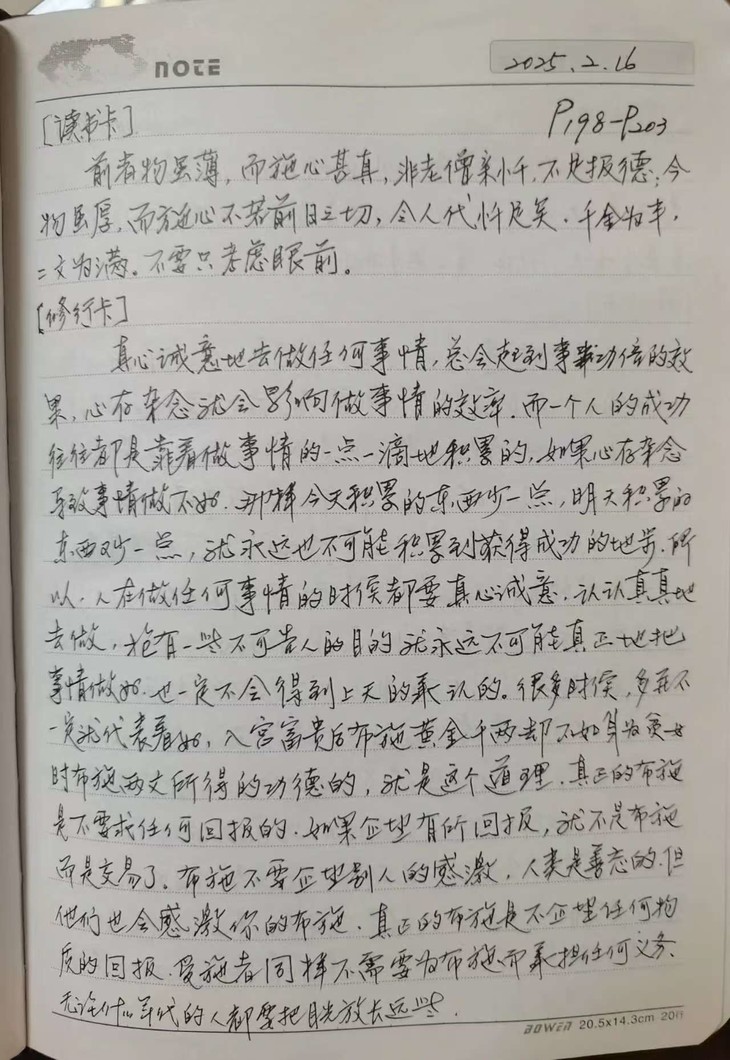 NOTE
2025.2.16
[读书卡] P198-P203
前者物虽薄,而施心甚真,非老僧亲忏,不足报德;今
物虽厚,而施心不若前日之切,令人代忏足矣.千金为半,
二文为满。不要只考虑眼前。
[修行卡]
真心诚意地去做任何事情,总会起到事半功倍的效
果,心存杂念就会影响做事情的效率.而一个人的成功
往往都是靠着做事情的一点一滴地积累的,如果心存杂念
导致事情做不好.那样今天积累的东西少一点,明天积累的
东西又少一点,就永远也不可能积累到获得成功的地步.所
以.人在做任何事情的时侯都要真心诚意.认认真真地
去做,抱有一些不可告人的目的就永远不可能真正地把
事情做好.也一定不会得到上天的承认的。很多时侯,多并不
一定就代表着好,入宫富贵后布施黄金千两却不如身为贫女
时布施两文所得的功德的,就是这个道理.真正的布施
是不要求任何回报的.如果企望有所回报,就不是布施
而是交易了。布施不要企望别人的感激,人类是善忘的.但
他们也会感激你的布施.真正的布施是不企望任何物
质的回报.受施者同样不需要为布施而承担任何义务.
无论什么年代的人都要把目光放长远些.
BOWEN 20.5x14.3cm